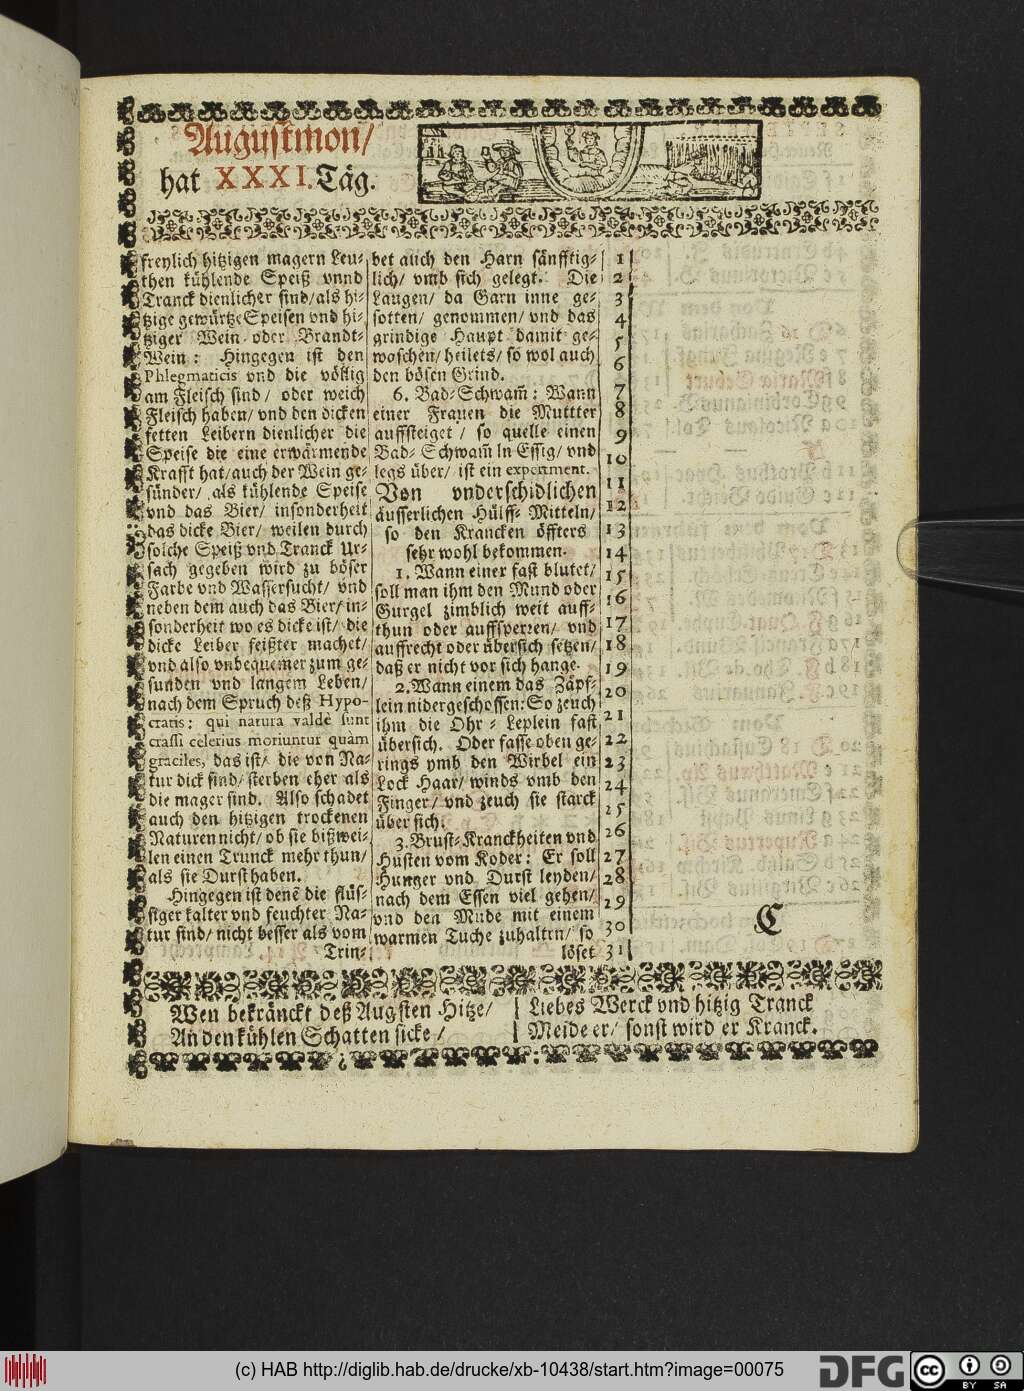 Augustmon/
hat XXXI. Täg.
freylich hitzigen magern Leu-
then kühlende Speiß vnnd
Tranck dienlicher sind/ als hi-
tzige gewürtze Speisen vnd hi-
tziger Wein oder Brandt-
Wein: Hingegen ist den
Phlegmaticis vnd die völlig
am Fleisch sind/ oder weich
Fleisch haben/ vnd den dicken
fetten Leibern dienlicher die
Speise die eine erwärmende
Krafft hat/ auch der Wein ge-
sünder/ als kühlende Speise
vnd das Bier/ insonderheit
das dicke Bier/ weilen durch
solche Speiß vnd Tranck Ur-
sach gegeben wird zu böser
Farbe vnd Wassersucht/ vnd
neben dem auch das Bier/ in-
sonderheit wo es dicke ist/ die
dicke Leiber feißter machet/
vnd also vnbequemer zum ge-
sunden vnd langem Leben/
nach dem Spruch deß Hypo-
cratis: qui natura valdè sunt
crassi celerius moriuntur quàm
graciles, das ist/ die von Na-
tur dick sind/ sterben eher als
die mager sind. Also schadet
auch den hitzigen trockenen
Naturen nicht/ ob sie bißwei-
len einen Trunck mehr thun/
als sie Durst haben.
Hingegen ist denẽ die flüs-
siger kalter vnd feuchter Na-
tur sind/ nicht besser als vom
Trin-
bet auch den Harn sänfftig-
lich/ vmb sich gelegt. Die
Laugen/ da Garn inne ge-
sotten/ genommen/ vnd das
grindige Haupt damit ge-
waschen/ heilets/ so wol auch
den bösen Grind.
6. Bad-Schwam̃: Wann
einer Frauen die Muttter
auffsteiget/ so quelle einen
Bad-Schwam̃ in Essig/ vnd
legs über/ ist ein experiment.
Von vnderschidlichen
äusserlichen Hülff-Mitteln/
so den Krancken öffters
sehr wohl bekommen.
1. Wann einer fast blutet/
soll man ihm den Mund oder
Gurgel zimblich weit auff-
thun oder auffsperren/ vnd
auffrecht oder übersich setzen/
daß er nicht vor sich hange.
2. Wann einem das Zäpf-
lein nidergeschossen: So zeuch
ihm die Ohr-Leplein fast
übersich. Oder fasse oben ge-
rings vmb den Wirbel ein
Lock Haar/ winds vmb den
Finger/ vnd zeuch sie starck
über sich.
3. Brust-Kranckheiten vnd
Husten vom Koder: Er soll
Hunger vnd Durst leyden/
nach dem Essen viel gehen/
vnd den Mude mit einem
warmen Tuche zuhalten/ so
löset
1
2
3
4
5
6
7
8
9
10
11
12
13
14
15
16
17
18
19
20
21
22
23
24
25
26
27
28
29
30
31
C
Wen bekränckt deß Augsten Hitze/
An den kühlen Schatten sicke/
Liebes Werck vnd hitzig Tranck
Meide er/ sonst wird er Kranck.
(c) HAB http://diglib.hab.de/drucke/xb-10438/start.htm?image=00075
DFG
cc
BY SA